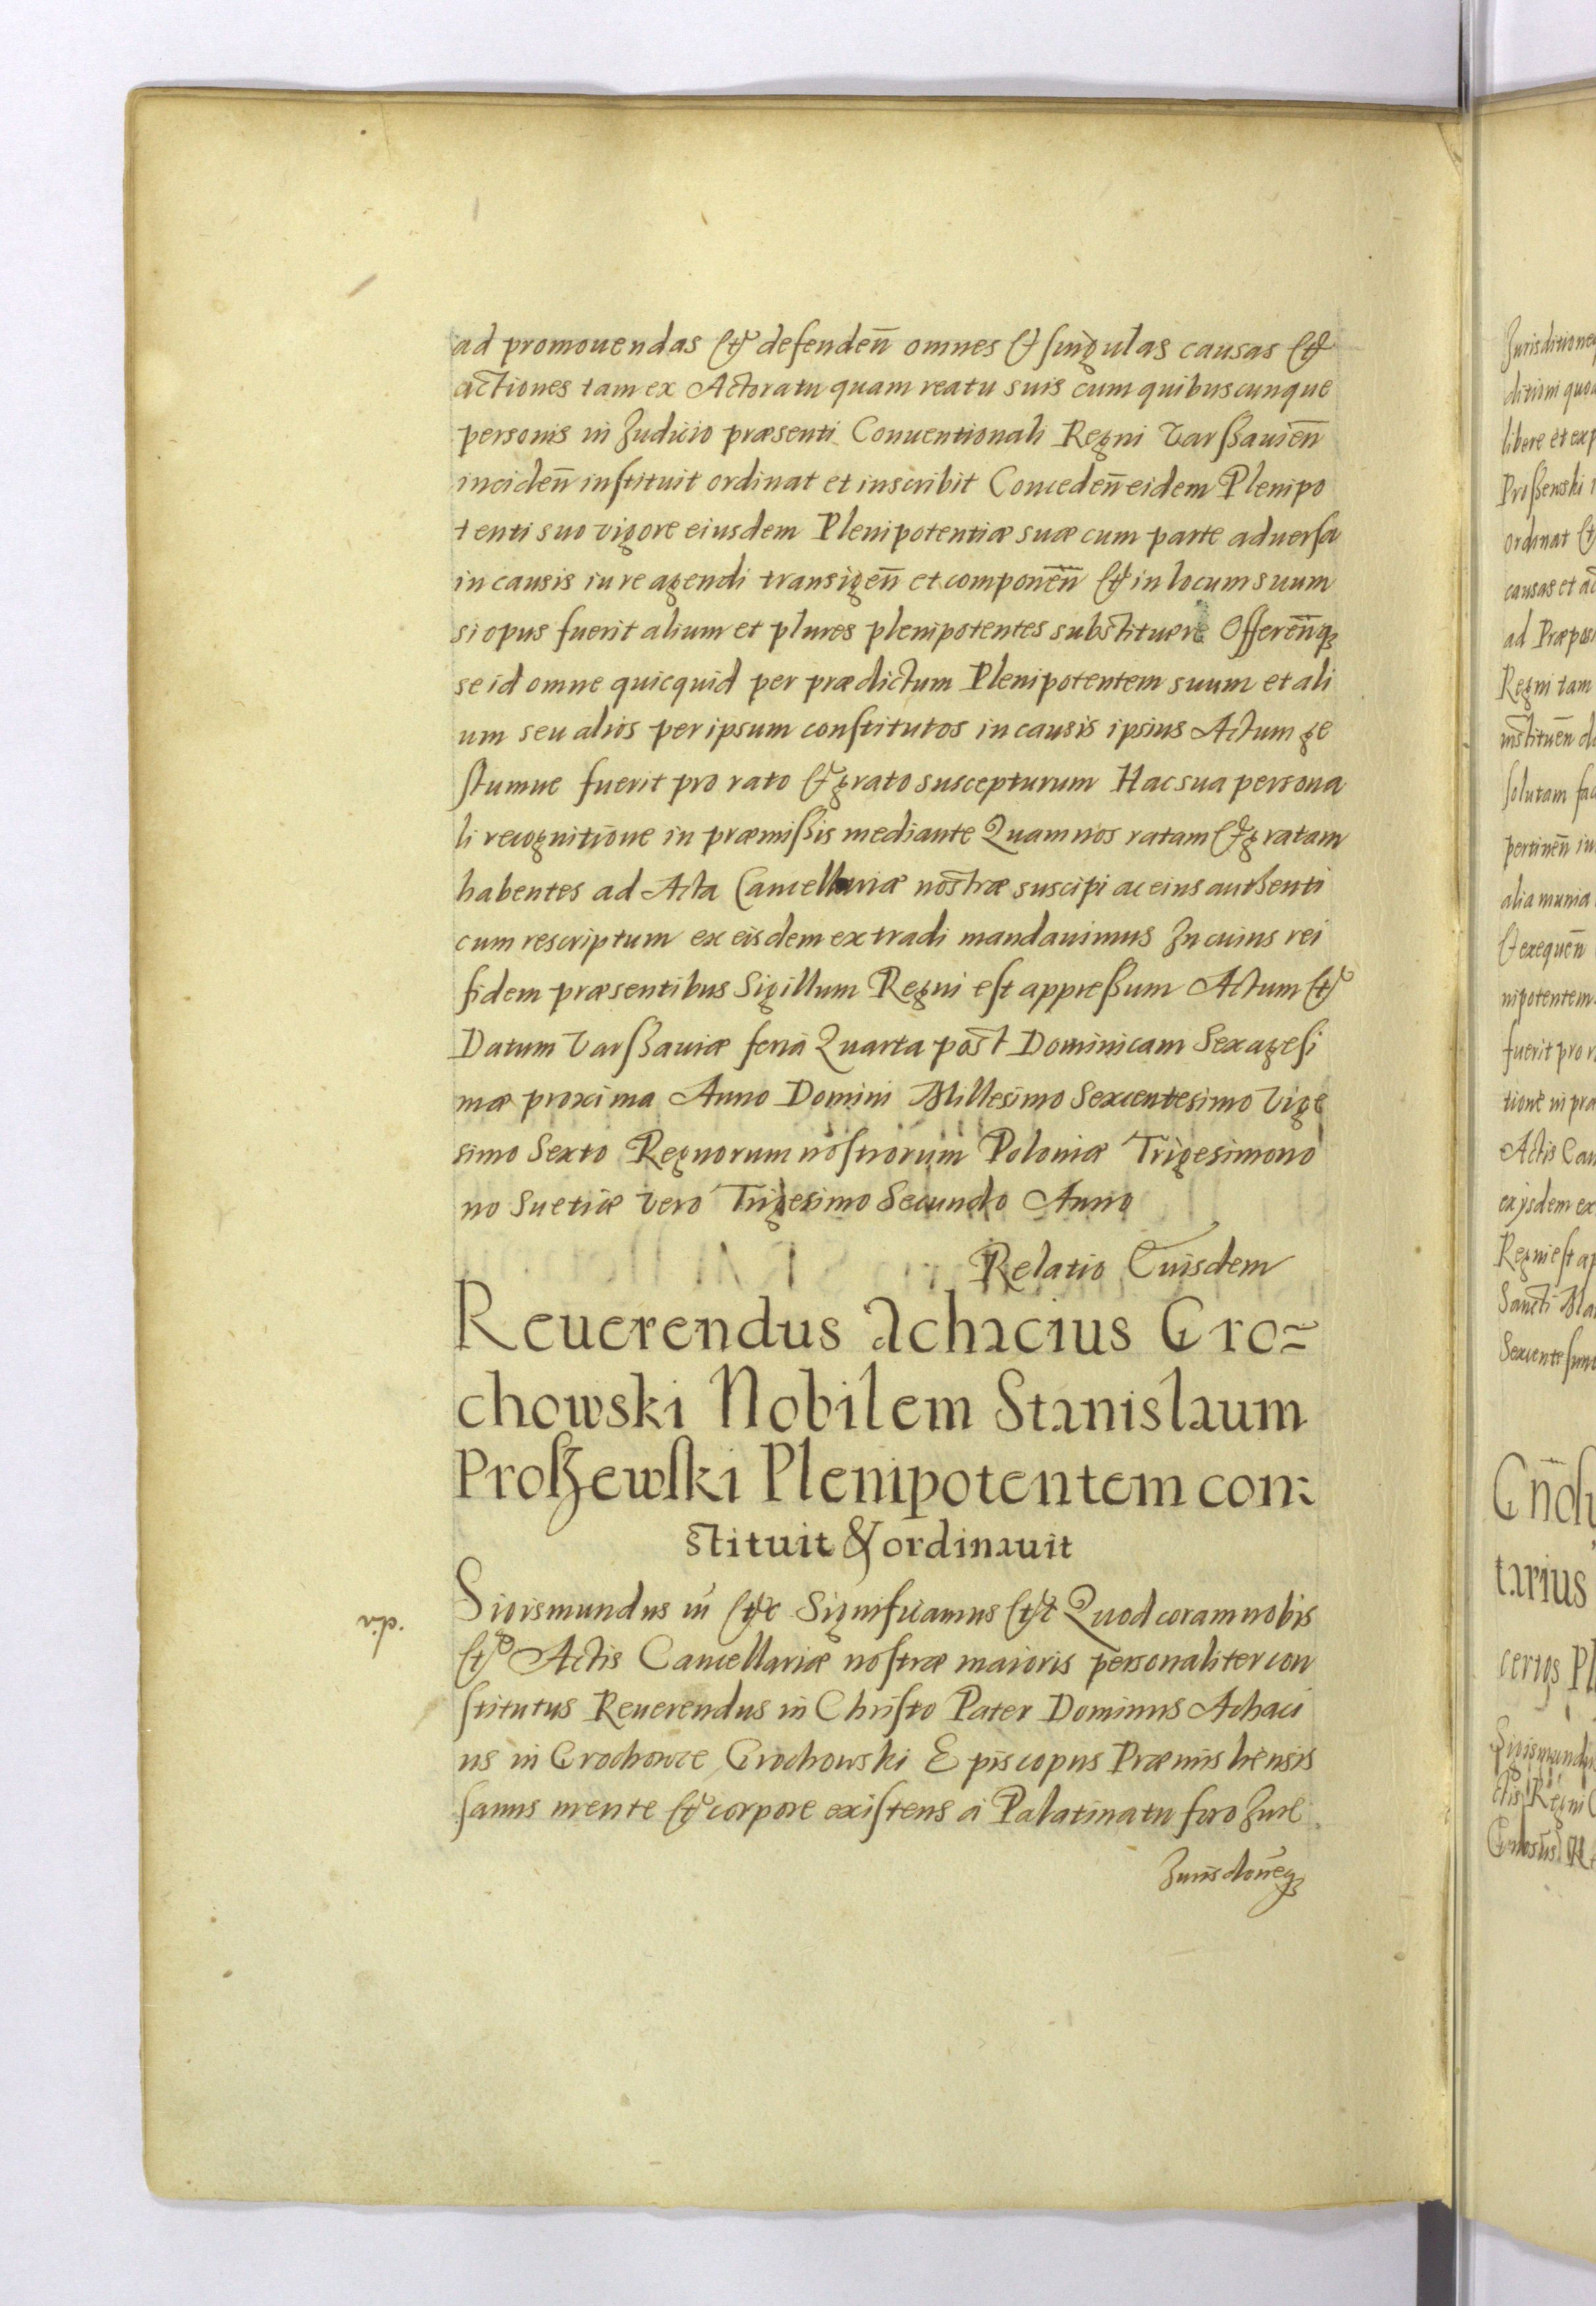 ad promouendas et defendeñ omnes et singulas causas et
actiones tam ex Actoratu quam reatu suis cum quibuscunque
personis in Judicio præsenti Conuentionali Regni Varßauieñ
incideñ instituit ordinat et inscribit Concedeñ eidem Plenipo
tenti suo vigore eiusdem Plenipotentiæ suæ cum parte aduersa
in causis iure agendi transigeñ et componeñ et in locum suum
si opus fuerit alium et plures plenipotentes substituere Offereñq
se id omne quicquid per prædictum Plenipotentem suum et ali
um seu alios per ipsum constitutos in causis ipsius Actum ge
stumue fuerit pro rato et grato suscepturum Hac sua persona
li recognitione in præmißis mediante Quam nos ratam et gratam
habentes ad Acta Cancellariæ nostræ suscipi ac eius authenti
cum rescriptum ex eisdem extradi mandauimus In cuius rei
fidem præsentibus Sigillum Regni est appreßum Actum et
Datum Varßauiæ feria Quarta post Dominicam Sexagesi
mæ proxima Anno Domini Millesimo Sexcentesimo Vige
simo Sexto Regnorum nostrorum Poloniæ Trigesimo no
no Suetiæ vero Trigesimo Secundo Anno
Relatio Cuisdem
Reuerendus Achacius Gro=
chowski Nobilem Stanislaum
Proßewski Plenipotentem con:
stituit & ordinauit
Sigismundus III etc Significamus etc Quod coram nobis
et Actis Cancellariæ nostræ maioris personaliter con
stitutus Reuerendus in Christo Pater Dominus Achaci
us in Grochowce Grochowski Episcopus Præmisliensis
sanus mente et corpore existens a Palatinatu foro Jure
Jurisdoneq
Jurisditioneq
ditioni quoa
libere et exp
Proßewski
ordinat et
causas et ac
ad Præposi
Regni tam
instituen̄
solutam fac
pertineñ in
alia munia
et exequeñ
nipotentem
fuerit pro r
tione in præ
Actis Can
Sancti
tarius
certos Pl